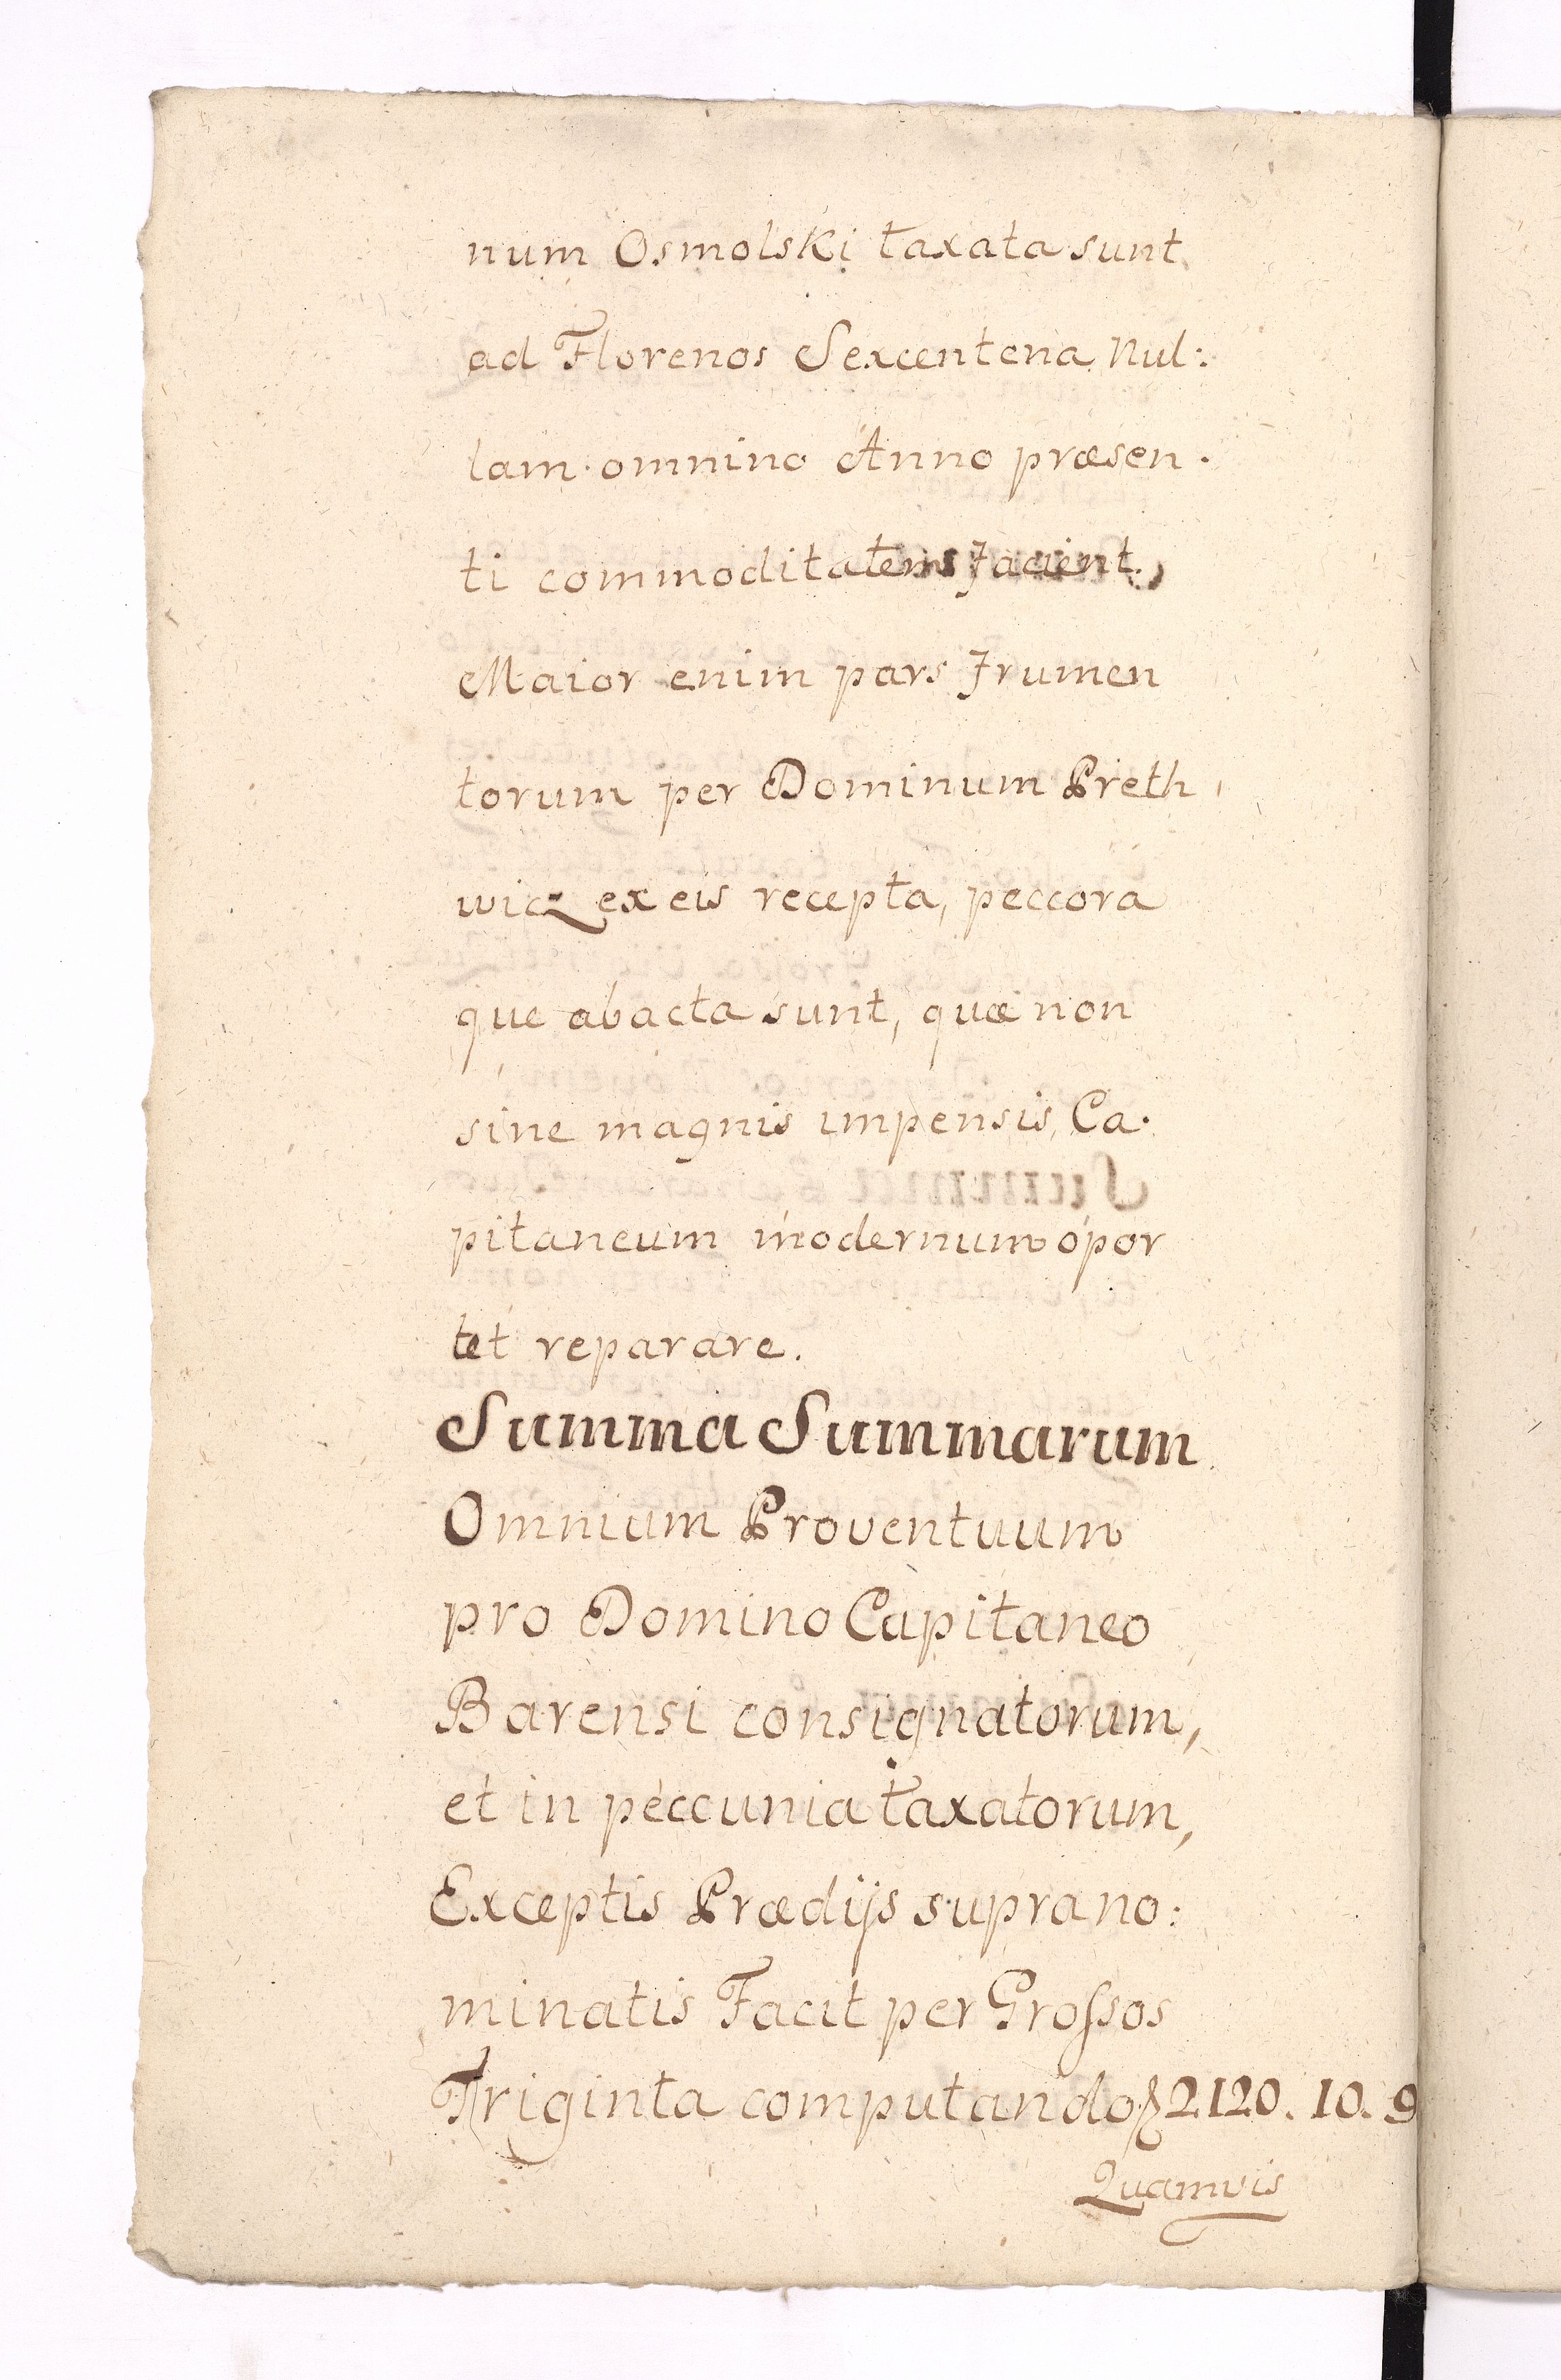 num Osmolski taxata sunt
ad Florenos Sexcentena Nul:
lam omnino Anno præsen.
ti commoditatem facient.
Maior enim pars frumen
torum per Dominum Preth
wicz ex eis recepta, peccora
que abacta sunt, quæ non
sine magnis impensis, Ca.
pitaneum modernum opor
tet reparare.
Summa Summarum
Omnium Proventuum
pro Domino Capitaneo
Barensi consignatorum,
et in peccunia taxatorum,
Exceptis Prædijs suprano:
minatis Facit per Groſsos
Triginta computando 2120. 10. 9
Quamvis